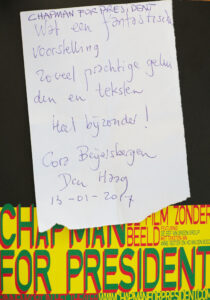 CHAPMAN FOR PRESIDENT
Wat een fantastische
voorstelling
Zoveel prachtige gelui
den en teksten
Heel bijzonder!
Cora Beijersbergen
Den Haag
13-01-2017
CHAPMAN
FILM ZONDER
BEELD
FOR PRESIDENT